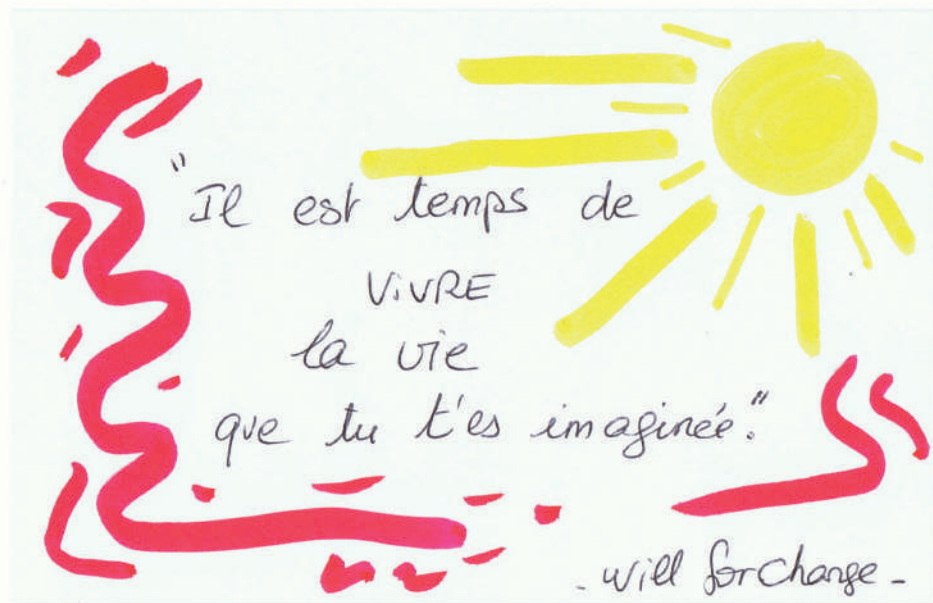 "Il est temps de
ViVRE
la vie
que tu t'es imaginée."
- will forChange -